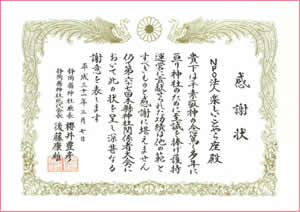 感謝状
NPO法人 楽しいひとやら座 殿
貴下は平素敬神の念篤く多年に
亘り神社のために至誠を捧げ護持
運営に貢献された功績は他の範と
すべきものと感謝に堪えません
仍て第六十七回本県神社関係者大会に
おいて此の状を呈し深甚なる
謝意を表します
平成二十一年三月七日
静岡県神社庁長 櫻井豊彦
静岡県神社総代会長 後藤康雄